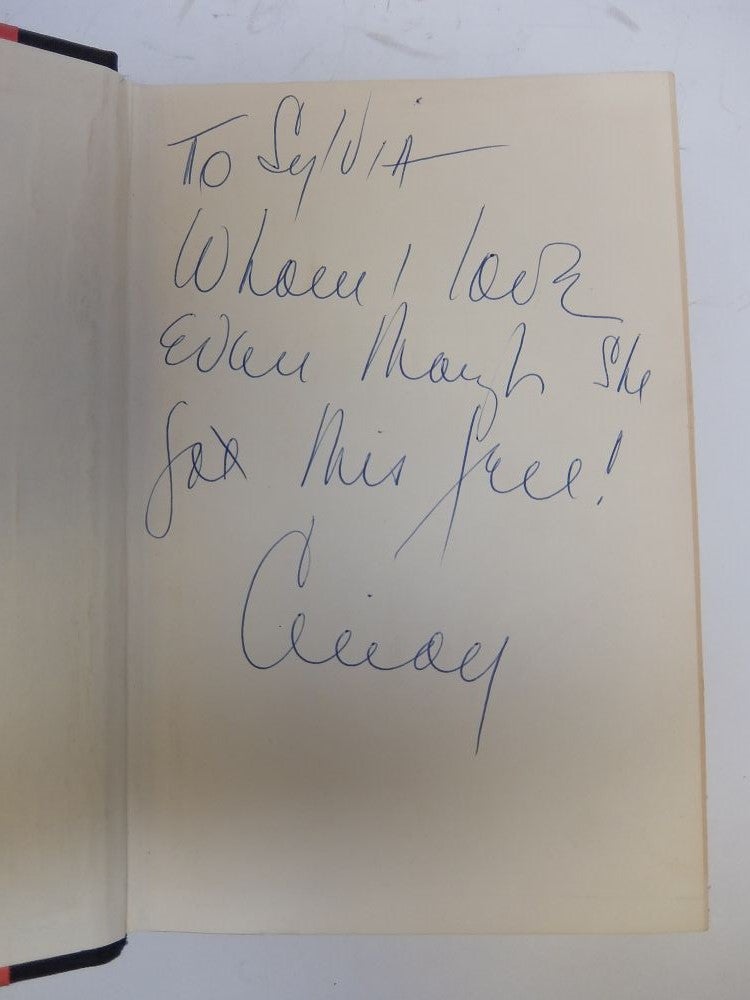 To Sylvia
Whom I love
Even though she
got this free!
Cindy